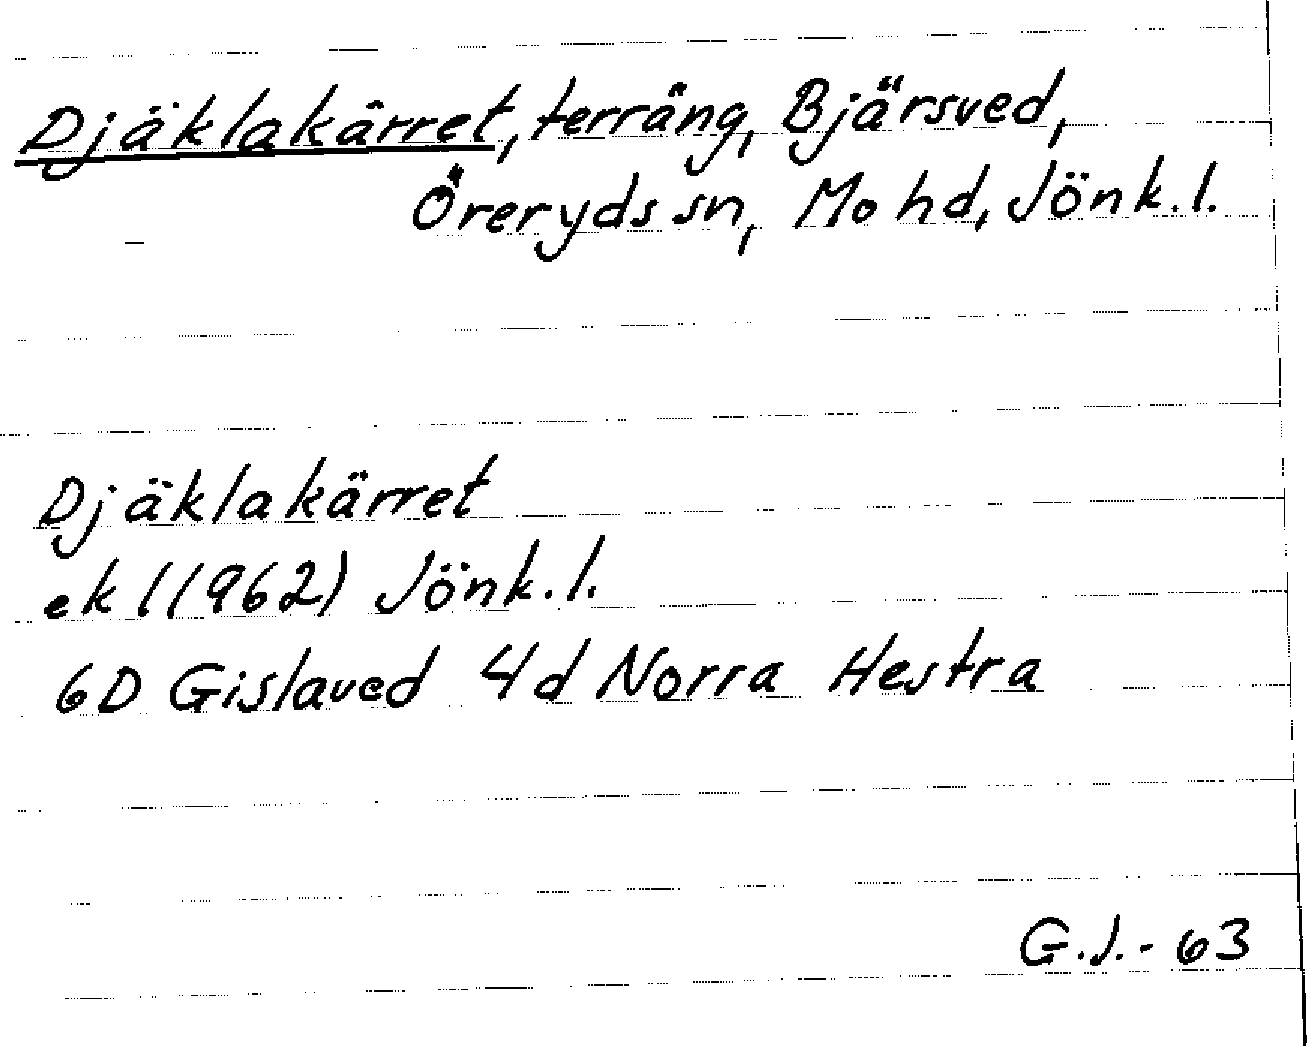 Djäklakärret, terräng, Bjärsved,
Öreryds sn, Mo hd, Jönk.l.
Djäklakärret
ek l (1962) Jönk.l.
6D Gislaved 4d Norra Hestra
G.J.-63